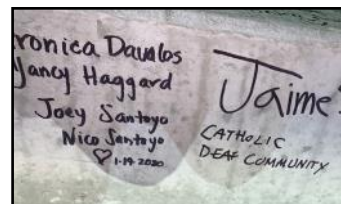 ronica Davalos
Yancy Haggard
Joey Santoyo
Nico Santoyo
♡ 1-19-2020
Jaime
CATHOLIC
DEAF COMMUNITY